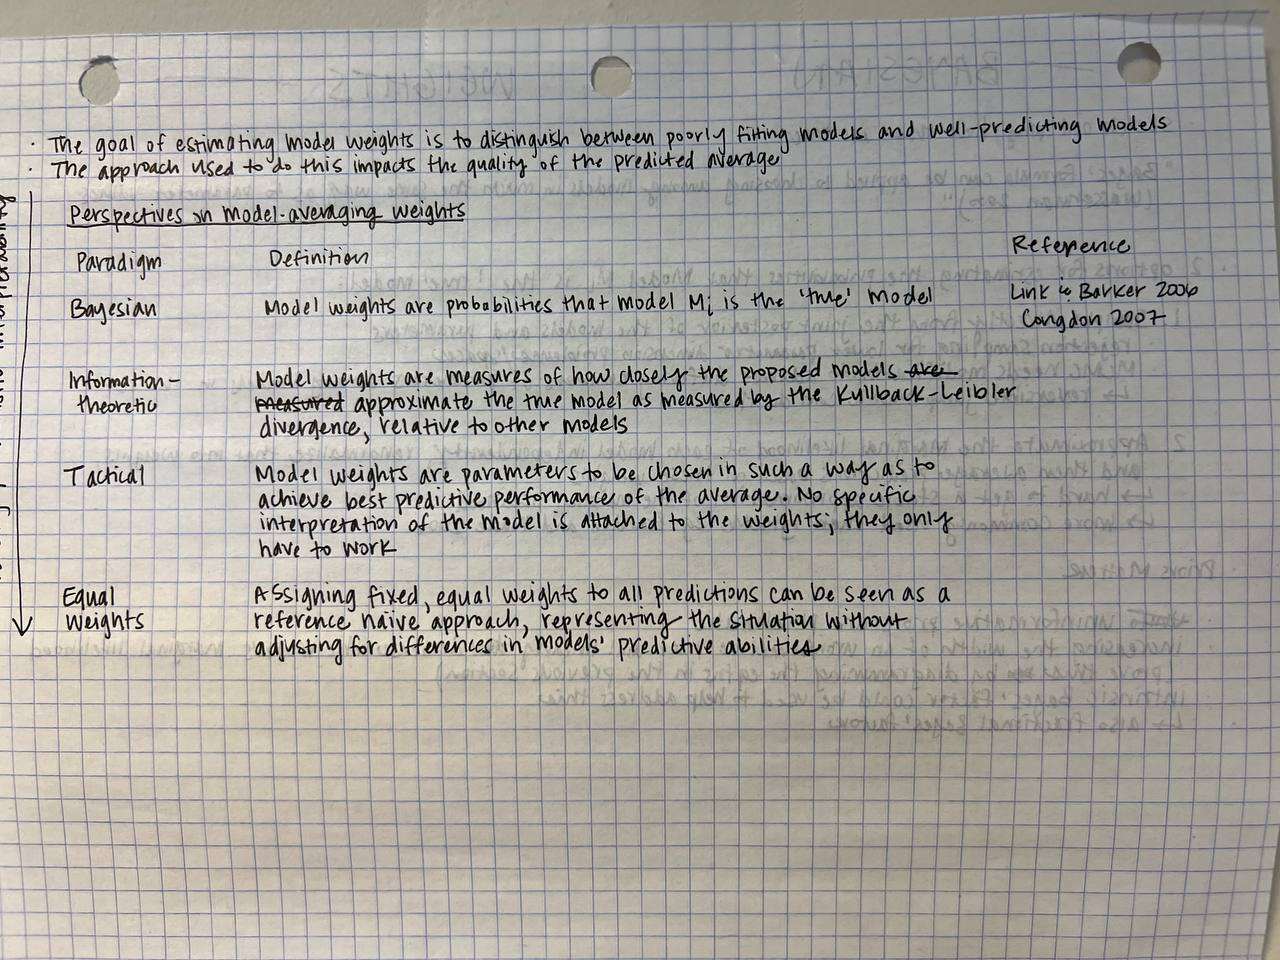 · The goal of estimating model weights is to distinguish between poorly fitting models and well-predicting models
· The approach used to do this impacts the quality of the predicted average
Perspectives on model-averaging weights
Paradigm Definition Reference
Bayesian Model weights are probabilities that model Mi is the 'true' model Link & Barker 2006
Congdon 2007
Information- Model weights are measures of how closely the proposed models are
theoretic measured approximate the true model as measured by the Kullback-Leibler
divergence, relative to other models
Tactical Model weights are parameters to be chosen in such a way as to
achieve best predictive performance of the average. No specific
interpretation of the model is attached to the weights, they only
have to work
Equal Assigning fixed, equal weights to all predictions can be seen as a
Weights reference naïve approach, representing the situation without
adjusting for differences in models' predictive abilities